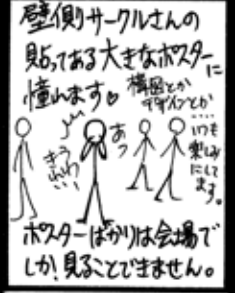 壁側サークルさんの
貼ってある大きなポスターに
憧れます♡
構図とか
デザインとか
……いつも
楽しみ
にして
ます。
あっ
ポスターばかりは会場で
しか見ることできません。